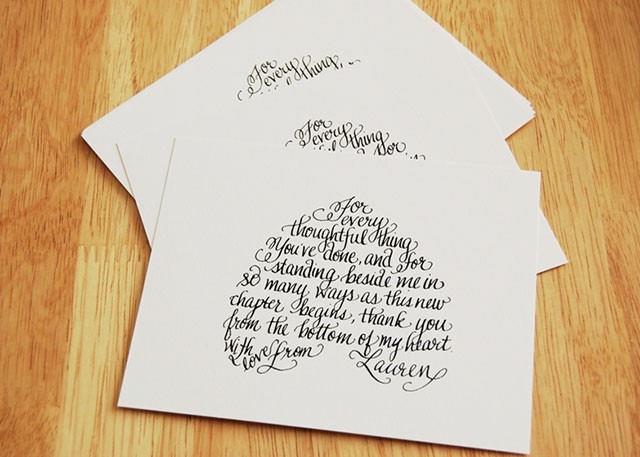 For
every thing,
For
every thing
For
every
thoughtful thing
You've done, and for
standing beside me in
so many ways as this new
chapter begins, thank you
from the bottom of my heart.
With
love from
Lauren